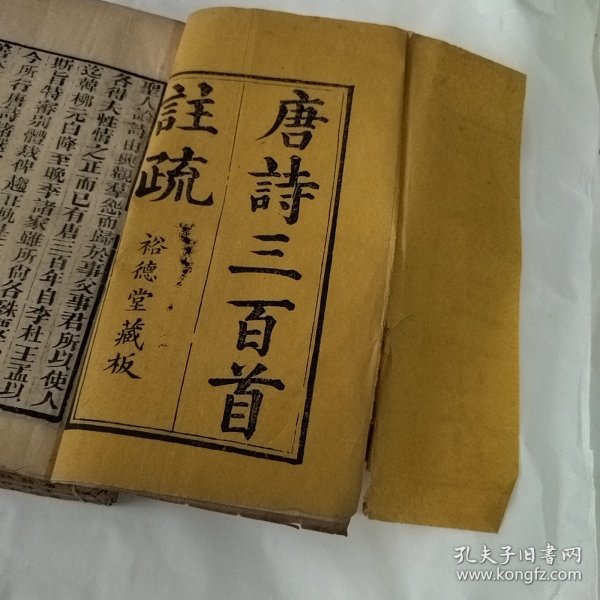 唐詩三百首
註疏
裕德堂藏板
聖人論詩由興觀羣怨而歸於事父事君所以使人
各得夫性情之正而已有唐三百年自李杜王孟以
迄韓柳元白降至晚季諸家雖所尚各殊
斯旨特
別體裁俾趨正軌
今所行唐詩諸選
孔夫子旧书网
www.kongfz.com